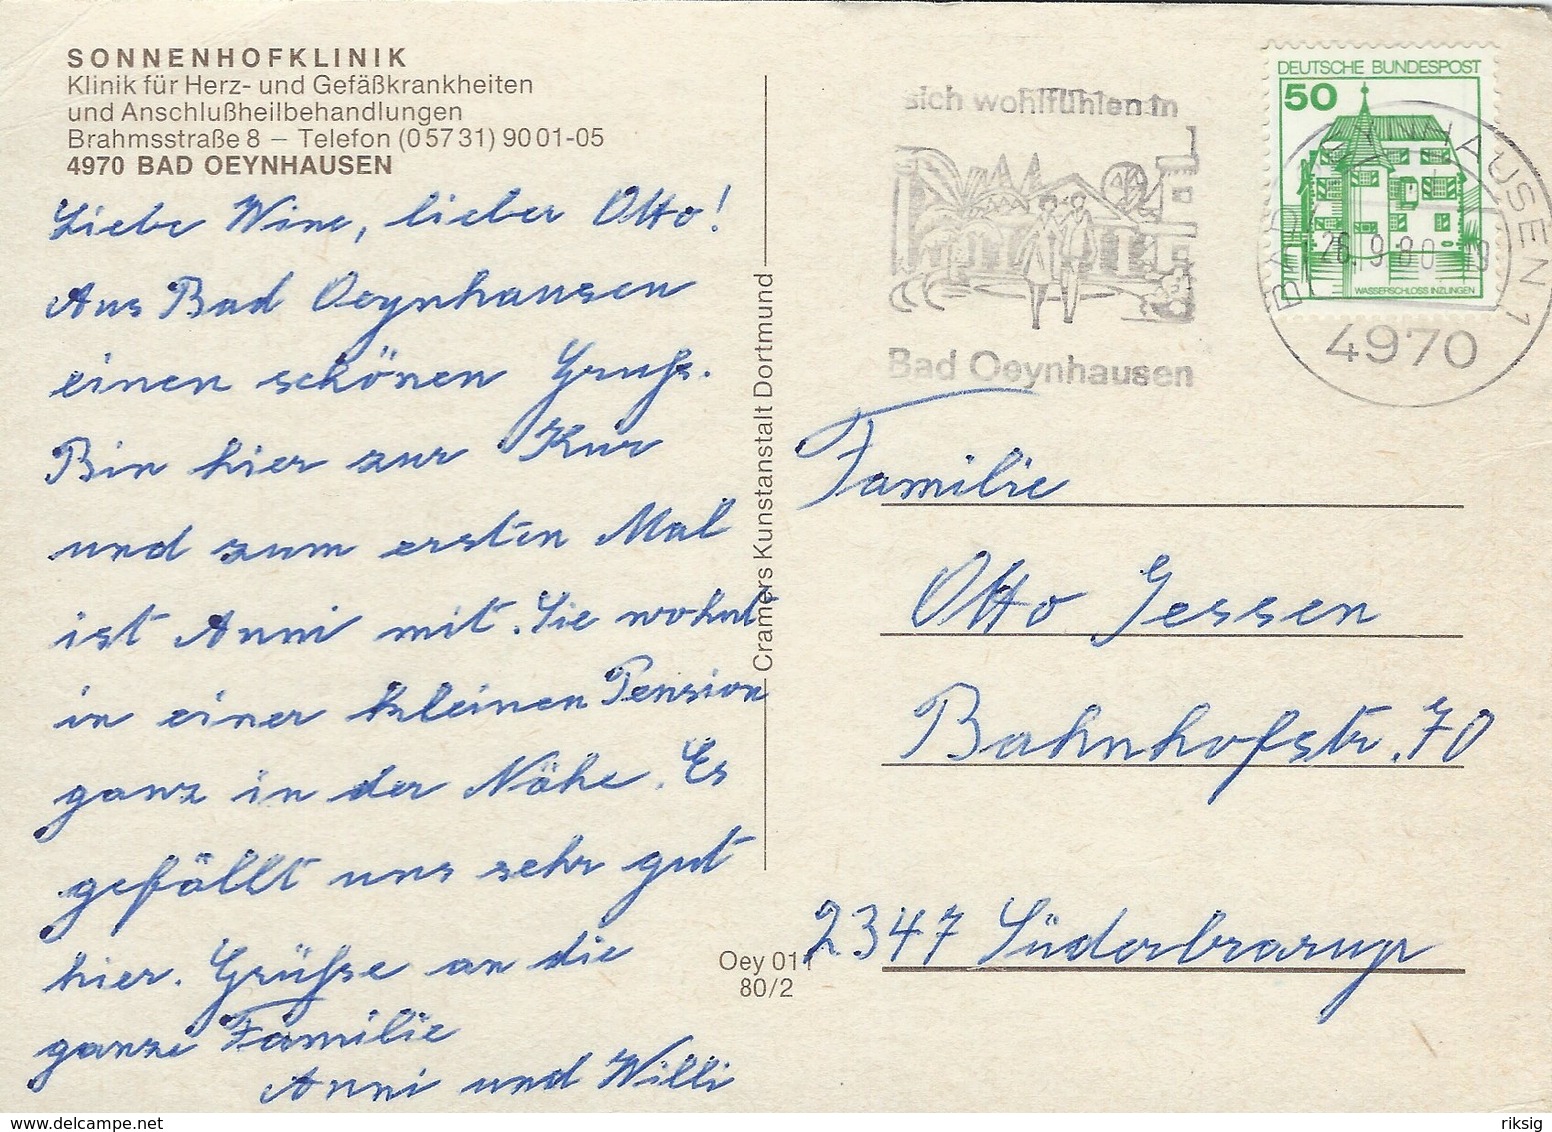 SONNENHOFKLINIK
Klinik für Herz- und Gefäßkrankheiten
und Anschlußheilbehandlungen
Brahmsstraße 8 – Telefon (05731) 9001-05
4970 BAD OEYNHAUSEN
Liebe Wine, lieber Otto!
Aus Bad Oeynhausen
einen schönen Gruß.
Bin hier zur Kur
und zum ersten Mal
ist Anni mit. Sie wohnt
in einer kleinen Pension
ganz in der Nähe. Es
gefällt uns sehr gut
hier. Grüße an die
ganze Familie
Anni und Willi
Cramers Kunstanstalt Dortmund
Oey 011
80/2
sich wohlfühlen in
Bad Oeynhausen
DEUTSCHE BUNDESPOST
50
WASSERSCHLOSS INZLINGEN
BAD OEYNHAUSEN 1
26.9.80
4970
Familie
Otto Jessen
Bahnhofstr. 70
2347 Süderbrarup
delcampe.net
riksig